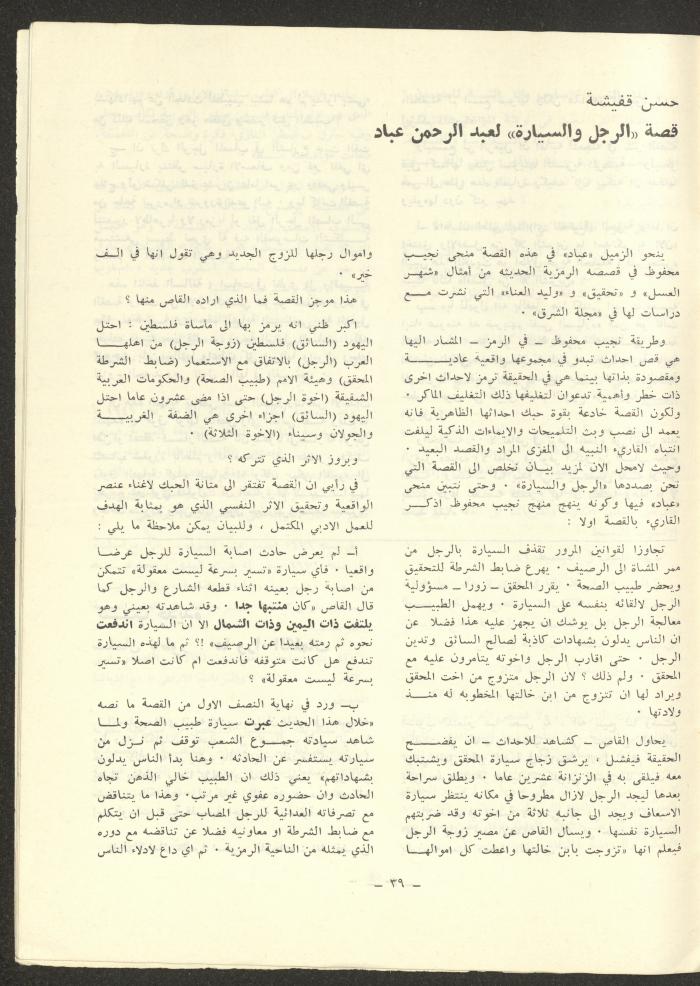 حسن قفيشة
قصة «الرجل والسيارة» لعبد الرحمن عباد
ينحو الزميل «عباد» في هذه القصة منحى نجيب
محفوظ في قصصه الرمزية الحديثه من أمثال «شهر
العسل» و «تحقيق» و «وليد العناء» التي نشرت مع
دراسات لها في «مجلة الشرق» .
وطريقة نجيب محفوظ – في الرمز – المشار اليها
هي قص احداث تبدو في مجموعها واقعية عادية
ومقصودة بذاتها بينما هي في الحقيقة ترمز لاحداث اخرى
ذات خطر وأهمية تدعوان لتغليفها ذلك التغليف الماكر .
ولكون القصة خادعة بقوة حبك احداثها الظاهرية فانه
يعمد الى نصب وبث التلميحات والايماءات الذكية ليلفت
انتباه القاريء النبيه الى المغزى المراد والقصد البعيد .
وحيث لامحل الان لمزيد بيان نخلص الى القصة التي
نحن بصددها «الرجل والسيارة» . وحتى نتبين منحى
«عباد» فيها وكونه ينهج منهج نجيب محفوظ اذكر
القاريء بالقصة اولا :
تجاوزا لقوانين المرور تقذف السيارة بالرجل من
ممر المشاة الى الرصيف . يهرع ضابط الشرطة للتحقيق
ويحضر طبيب الصحة . يقرر المحقق – زورا – مسؤولية
الرجل لالقائه بنفسه على السيارة . ويهمل الطبيب
معالجة الرجل بل يوشك ان يجهز عليه هذا فضلا عن
ان الناس يدلون بشهادات كاذبة لصالح السائق وتدين
الرجل . حتى اقارب الرجل واخوته يتآمرون عليه مع
المحقق . ولم ذلك ؟ لان الرجل متزوج من اخت المحقق
ويراد لها ان تتزوج من ابن خالتها المخطوبه له منذ
ولادتها .
يحاول القاص – كشاهد للاحداث – ان يفضح
الحقيقة فيفشل ، يرشق زجاج سيارة المحقق ويشتبك
معه فيلقى به في الزنزانة عشرين عاما . ويطلق سراحة
بعدها ليجد الرجل لازال مطروحا في مكانه ينتظر سيارة
الاسعاف ويجد الى جانبه ثلاثة من اخوته وقد ضربتهم
السيارة نفسها . ويسأل القاص عن مصير زوجة الرجل
فيعلم انها «تزوجت بابن خالتها واعطت كل اموالها
واموال رجلها للزوج الجديد وهي تقول انها في الف
خير» .
هذا موجز القصة فما الذي اراده القاص منها ؟
اكبر ظني انه يرمز بها الى مأساة فلسطين : احتل
اليهود (السائق) فلسطين (زوجة الرجل) من اهلها
العرب (الرجل) بالاتفاق مع الاستعمار (ضابط الشرطة
المحقق) وهيئة الامم (طبيب الصحة) والحكومات العربية
الشقيقة (اخوة الرجل) حتى اذا مضى عشرون عاما احتل
اليهود (السائق) اجزاء اخرى هي الضفة الغربية
والجولان وسيناء (الاخوة الثلاثة) .
وبروز الاثر الذي تتركه ؟
في رأيي ان القصة تفتقر الى متانة الحبك لاغناء عنصر
الواقعية وتحقيق الاثر النفسي الذي هو بمثابة الهدف
للعمل الادبي المكتمل ، وللبيان يمكن ملاحظة ما يلي :
أ– لم يعرض حادث اصابة السيارة للرجل عرضا
واقعيا . فأي سيارة «تسير بسرعة ليست معقولة» تتمكن
من اصابة رجل بعينه اثناء قطعه الشارع والرجل كما
قال القاص «كان منتبها جدا . وقد شاهدته بعيني وهو
يلتفت ذات اليمين وذات الشمال الا ان السيارة اندفعت
نحوه ثم رمته بعيدا عن الرصيف» !؟ ثم ما لهذه السيارة
تندفع هل كانت متوقفه فاندفعت ام كانت اصلا «تسير
بسرعة ليست معقولة» ؟
ب– ورد في نهاية النصف الاول من القصة ما نصه
«خلال هذا الحديث عبرت سيارة طبيب الصحة ولما
شاهد سيادته جموع الشعب توقف ثم نزل من
سيارته يستفسر عن الحادثه . وهنا بدأ الناس يدلون
بشهاداتهم» يعني ذلك ان الطبيب خالي الذهن تجاه
الحادث وان حضوره عفوي غير مرتب. وهذا ما يتناقض
مع تصرفاته العدائية للرجل المصاب حتى قبل ان يتكلم
مع ضابط الشرطة او معاونيه فضلا عن تناقضه مع دوره
الذي يمثله من الناحية الرمزية . ثم اي داع لادلاء الناس
– ٣٩ –